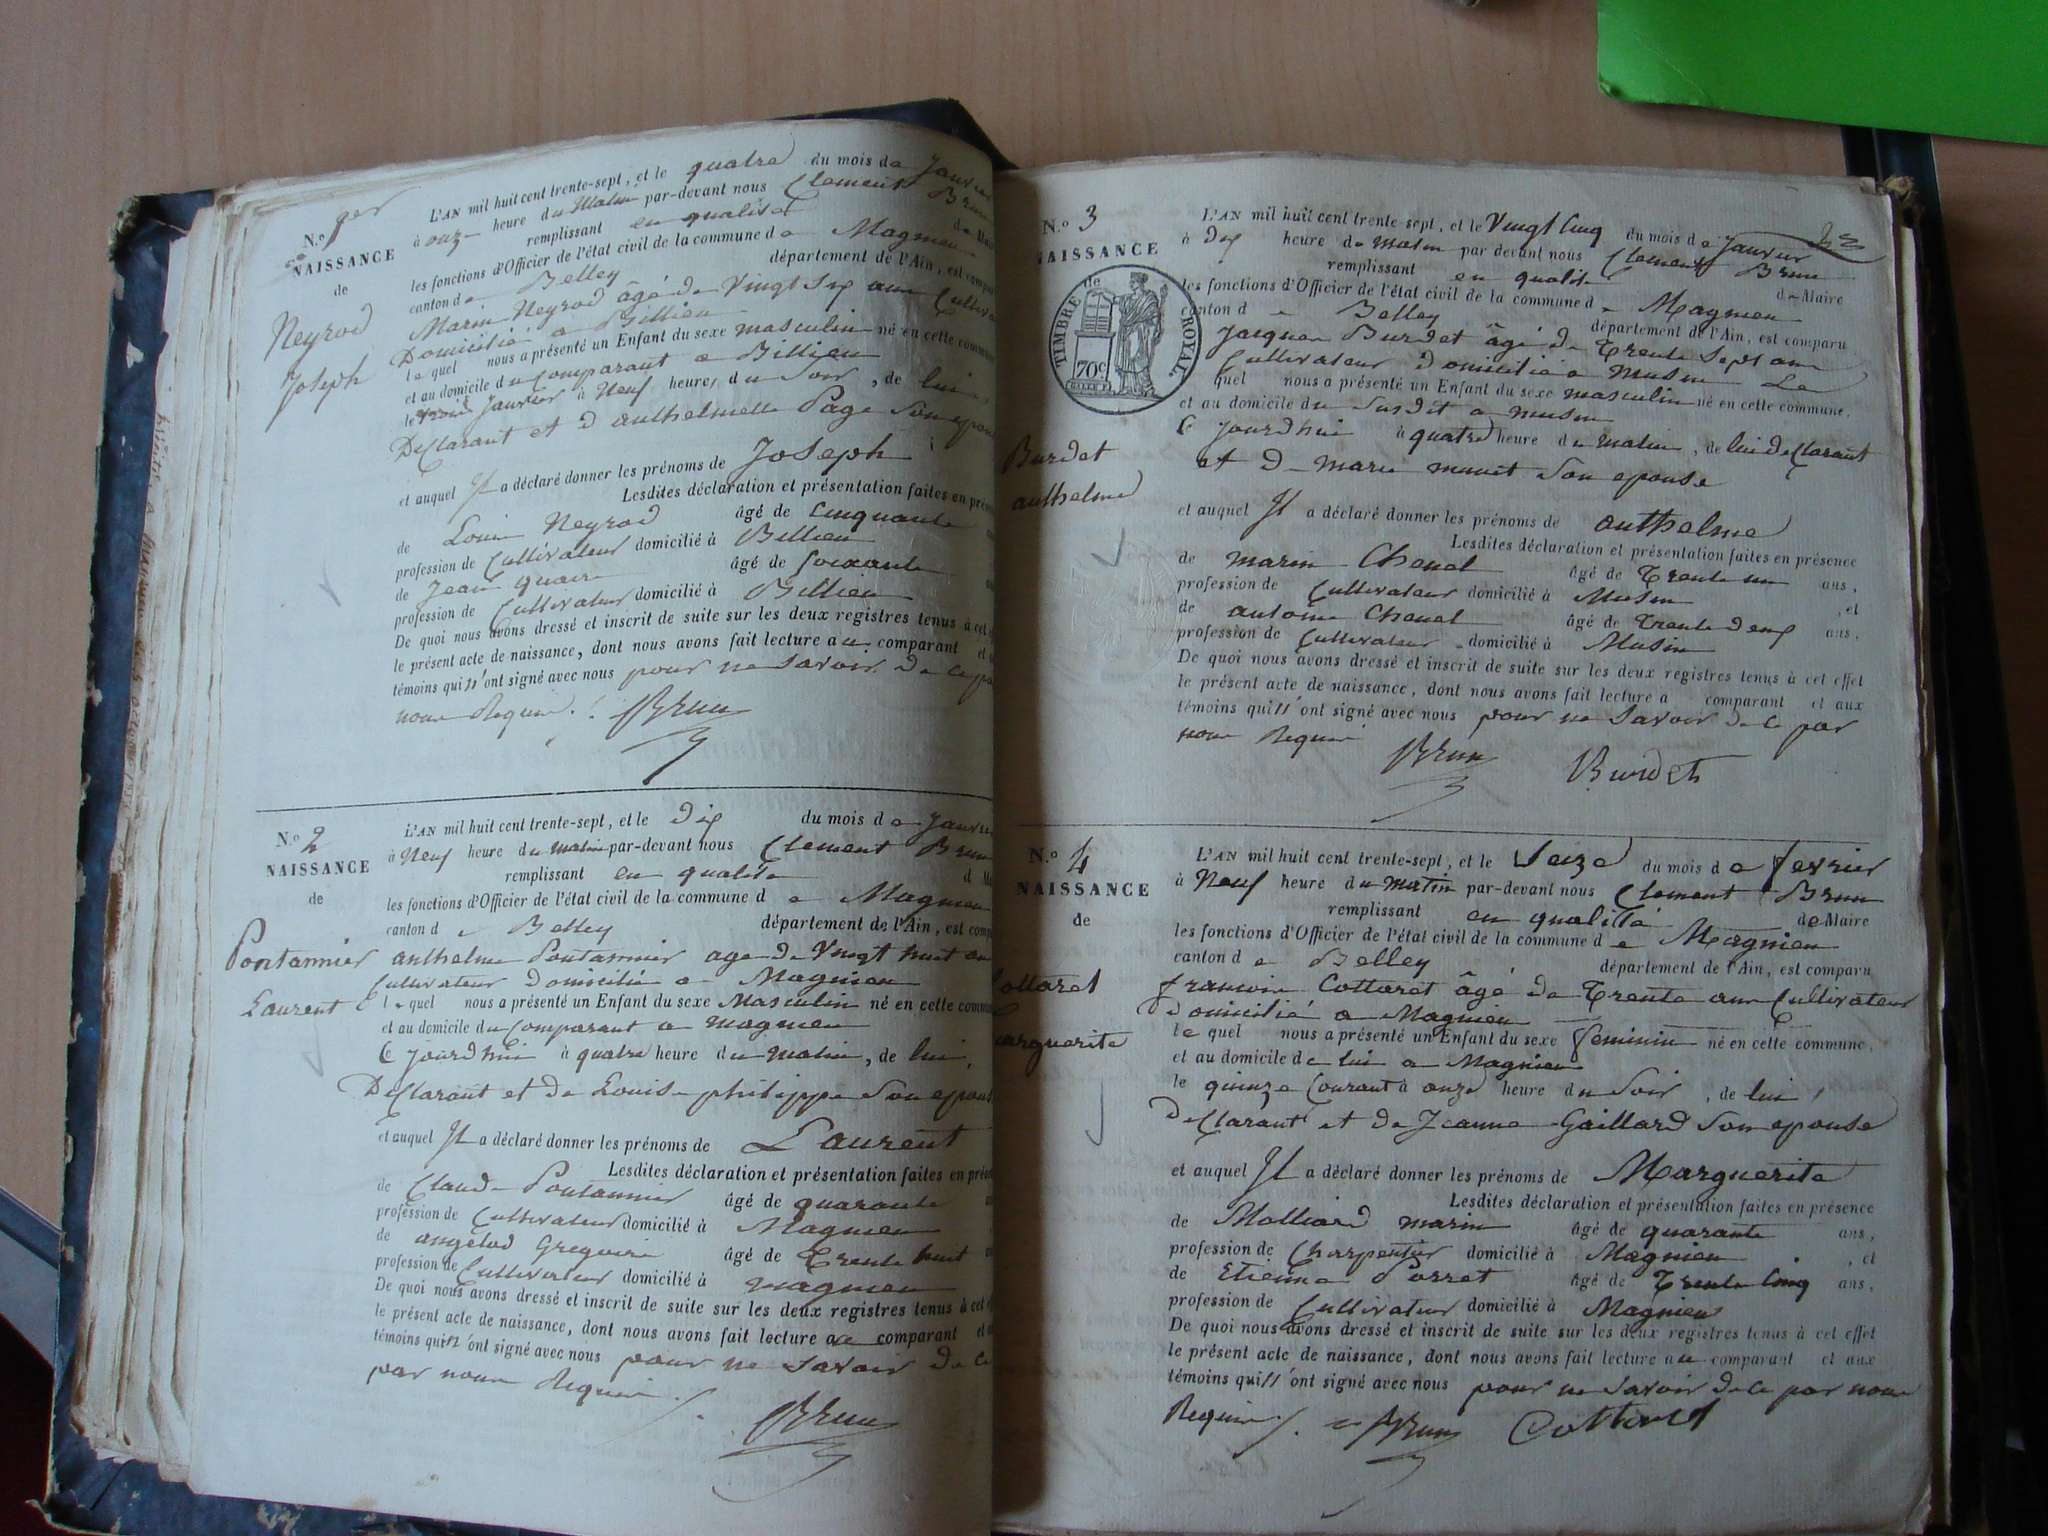 N.o 1er
NAISSANCE
de
Neyrod
Joseph
L'AN mil huit cent trente-sept, et le quatre du mois de Janvier
à onze heure du Matin par-devant nous Clement Brun
remplissant en qualité de
les fonctions d'Officier de l'état civil de la commune de Magnieu
canton de Belley département de l'Ain, est
Marin Neyrod âgé de Vingt six ans
Domicilié a Billieu
lequel nous a présenté un Enfant du sexe masculin né en cette
et au domicile du Comparant a Billieu
le trois Janvier à Neuf heures du Soir, de lui
Declarant et d anthelmette Page Son
et auquel Il a déclaré donner les prénoms de Joseph
Lesdites déclaration et présentation faites en
de Louis Neyrod âgé de Cinquante
profession de Cultivateur domicilié à Billieu
de Jean âgé de Soixante
profession de Cultivateur domicilié à Billieu
De quoi nous avons dressé et inscrit de suite sur les deux registres tenus à cet
le présent acte de naissance, dont nous avons fait lecture au comparant et
témoins qui n'ont signé avec nous pour ne Savoir de ce
nous Requis. Brun
N.o 2
NAISSANCE
de
Pontannier
Laurent
L'AN mil huit cent trente-sept, et le dix du mois de
à Neuf heure du matin par-devant nous Clement Brun
remplissant en qualité
les fonctions d'Officier de l'état civil de la commune de Magnieu
canton de Belley département de l'Ain, est
anthelme Pontannier age de Vingt huit
Cultivateur Domicilié a Magnieu
lequel nous a présenté un Enfant du sexe Masculin né en cette
et au domicile du Comparant a magnieu
Ce jourdhui à quatre heure du matin, de lui
Declarant et de Louise philippe Son
et auquel Il a déclaré donner les prénoms de Laurent
Lesdites déclaration et présentation faites en
de Claude Pontannier âgé de quarante
profession de Cultivateur domicilié à Magnieu
de angelod Gregoire âgé de Trente huit
profession de Cultivateur domicilié à magnieu
De quoi nous avons dressé et inscrit de suite sur les deux registres tenus à cet
le présent acte de naissance, dont nous avons fait lecture au comparant et
témoins qui n'ont signé avec nous pour ne Savoir de ce
par nous Requis.
Brun
N.o 3
NAISSANCE
de
TIMBRE ROYAL
70c
Burdet
anthelme
L'AN mil huit cent trente-sept, et le Vingt Cinq du mois de Janvier
à dix heure de matin par devant nous Clement Brun
remplissant en qualité de Maire
les fonctions d'Officier de l'état civil de la commune de Magnieu
canton de Belley département de l'Ain, est comparu
Jacques Burdet âgé de Trente Sept ans
Cultivateur domicilié a Musin Le
quel nous a présenté un Enfant du sexe masculin né en cette commune,
et au domicile du Susdit a musin
Ce jourdhui à quatre heure du matin, de lui Declarant
et de marie Son epouse
et auquel Il a déclaré donner les prénoms de anthelme
Lesdites déclaration et présentation faites en présence
de marin Chenel âgé de Trente un ans,
profession de Cultivateur domicilié à Musin, et
de antoine Chenel âgé de Trente deux ans,
profession de Cultivateur domicilié à Musin
De quoi nous avons dressé et inscrit de suite sur les deux registres tenus à cet effet
le présent acte de naissance, dont nous avons fait lecture a comparant et aux
témoins qui n'ont signé avec nous pour ne Savoir de ce par
nous Requis Brun Burdet
N.o 4
NAISSANCE
de
Cottaret
Marguerite
L'AN mil huit cent trente-sept, et le Seize du mois de fevrier
à Neuf heure du matin par-devant nous Clement Brun
remplissant en qualité de Maire
les fonctions d'Officier de l'état civil de la commune de Magnieu
canton de Belley département de l'Ain, est comparu
francois Cottaret âgé de Trente ans Cultivateur
Domicilié a Magnieu
lequel nous a présenté un Enfant du sexe feminin né en cette commune,
et au domicile de lui a Magnieu
le quinze Courant à onze heure du Soir, de lui
declarant et de Jeanne Gaillard Son epouse
et auquel Il a déclaré donner les prénoms de Marguerite
Lesdites déclaration et présentation faites en présence
de Molliard marin âgé de quarante ans,
profession de Charpentier domicilié à Magnieu, et
de Etienne Porret âgé de Trente Cinq ans,
profession de Cultivateur domicilié à Magnieu
De quoi nous avons dressé et inscrit de suite sur les deux registres tenus à cet effet
le présent acte de naissance, dont nous avons fait lecture au comparant et aux
témoins qui n'ont signé avec nous pour ne Savoir de ce par nous
Requis. Brun Cottaret